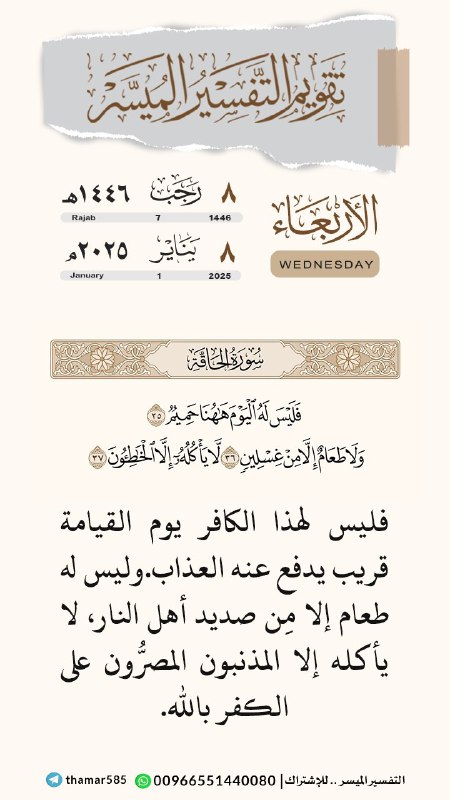 تقويم التَّفسيرُ المُيسَّر
الأربعاء
WEDNESDAY
٨ رَجَب ١٤٤٦هـ
Rajab 7 1446
٨ يَنَاير ٢٠٢٥م
January 1 2025
سُورَةُ الحَاقَّة
فَلَيْسَ لَهُ ٱلْيَوْمَ هَٰهُنَا حَمِيمٌ ٣٥
وَلَا طَعَامٌ إِلَّا مِنْ غِسْلِينٍ ٣٦ لَّا يَأْكُلُهُۥٓ إِلَّا ٱلْخَٰطِـُٔونَ ٣٧
فليس لهذا الكافر يوم القيامة
قريب يدفع عنه العذاب.وليس له
طعام إلا مِن صديد أهل النار، لا
يأكله إلا المذنبون المصرُّون على
الكفر بالله.
التفسير الميسر .. للإشتراك | 00966551440080 thamar585